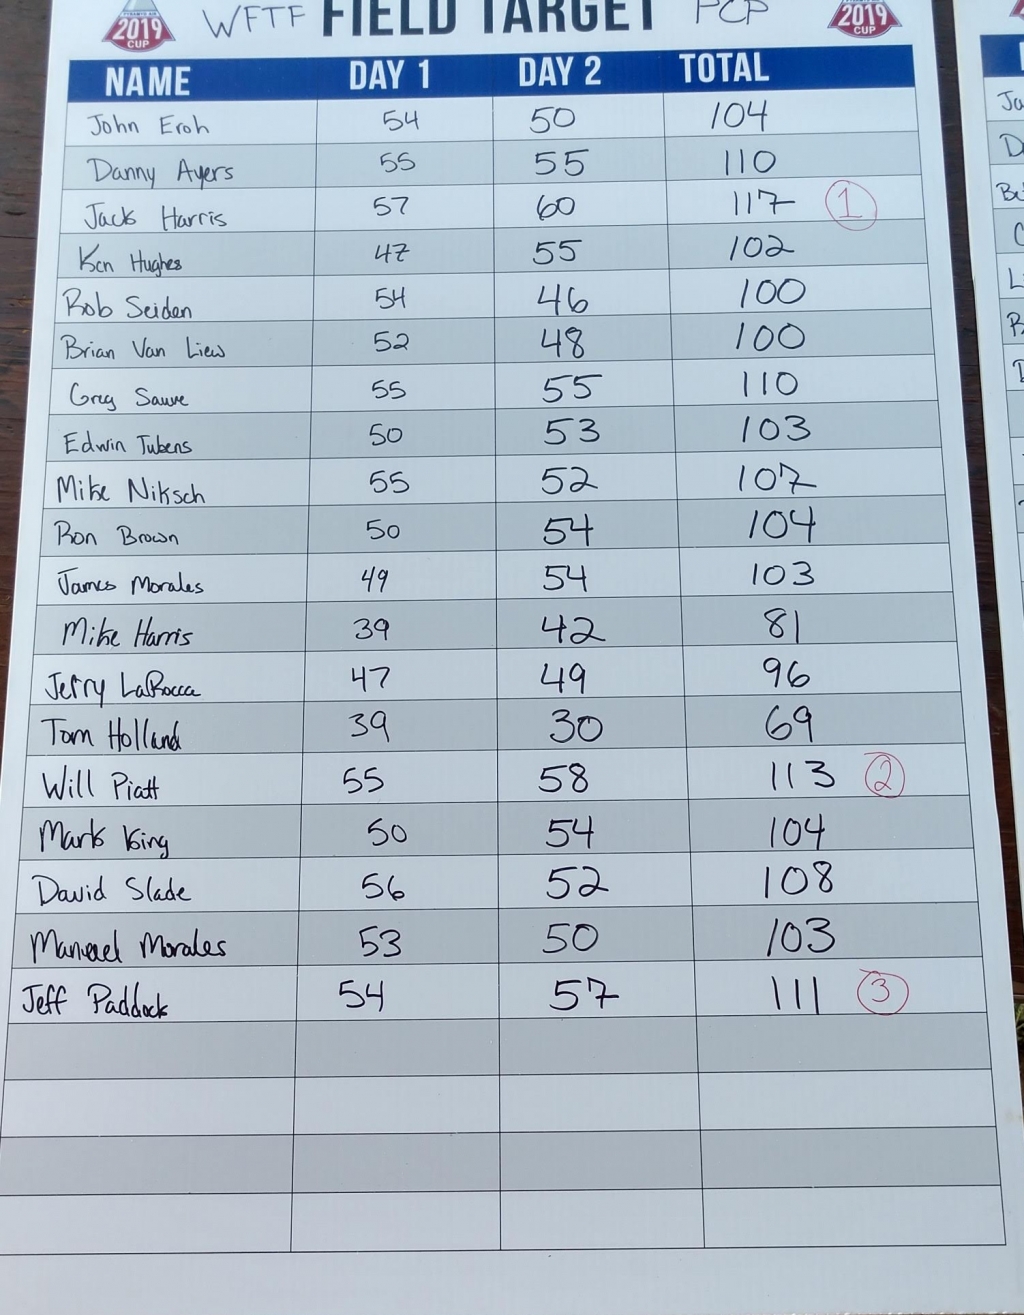 2019 CUP WFTF FIELD TARGET PCP 2019 CUP
NAME DAY 1 DAY 2 TOTAL
John Eroh 54 50 104
Danny Ayers 55 55 110
Jack Harris 57 60 117 1
Ken Hughes 47 55 102
Rob Seiden 54 46 100
Brian Van Liew 52 48 100
Greg Sauve 55 55 110
Edwin Tubens 50 53 103
Mike Niksch 55 52 107
Ron Brown 50 54 104
James Morales 49 54 103
Mike Harris 39 42 81
Jerry LaRocca 47 49 96
Tom Holland 39 30 69
Will Piatt 55 58 113 2
Mark King 50 54 104
David Slade 56 52 108
Manuael Morales 53 50 103
Jeff Paddock 54 57 111 3